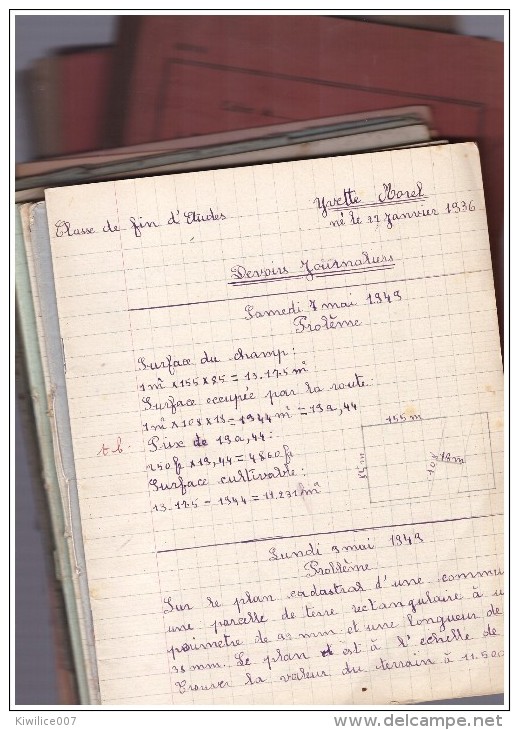 Classe de fin d'Etudes
Yvette Morel
né le 27 Janvier 1936
Devoirs Journaliers
Samedi 7 mai 1949
Problème
Surface du champ:
1m² x 155 x 85 = 13.175 m²
Surface occupée par la route:
1m² x 108 x 18 = 1944 m² = 19a,44
t.b.
Prix de 19a,44:
250f x 19,44 = 4860f
Surface cultivable:
13.175 - 1944 = 11.231 m²
155 m
85 m
108
18m
Lundi 9 mai 1949
Problème
Sur le plan cadastral d'une commu
une parcelle de terre rectangulaire à u
périmètre de mm et une longueur de
mm. Le plan est à l'echelle de
Trouver la valeur du terrain à 11.500
Kiwilice007
www.delcampe.net